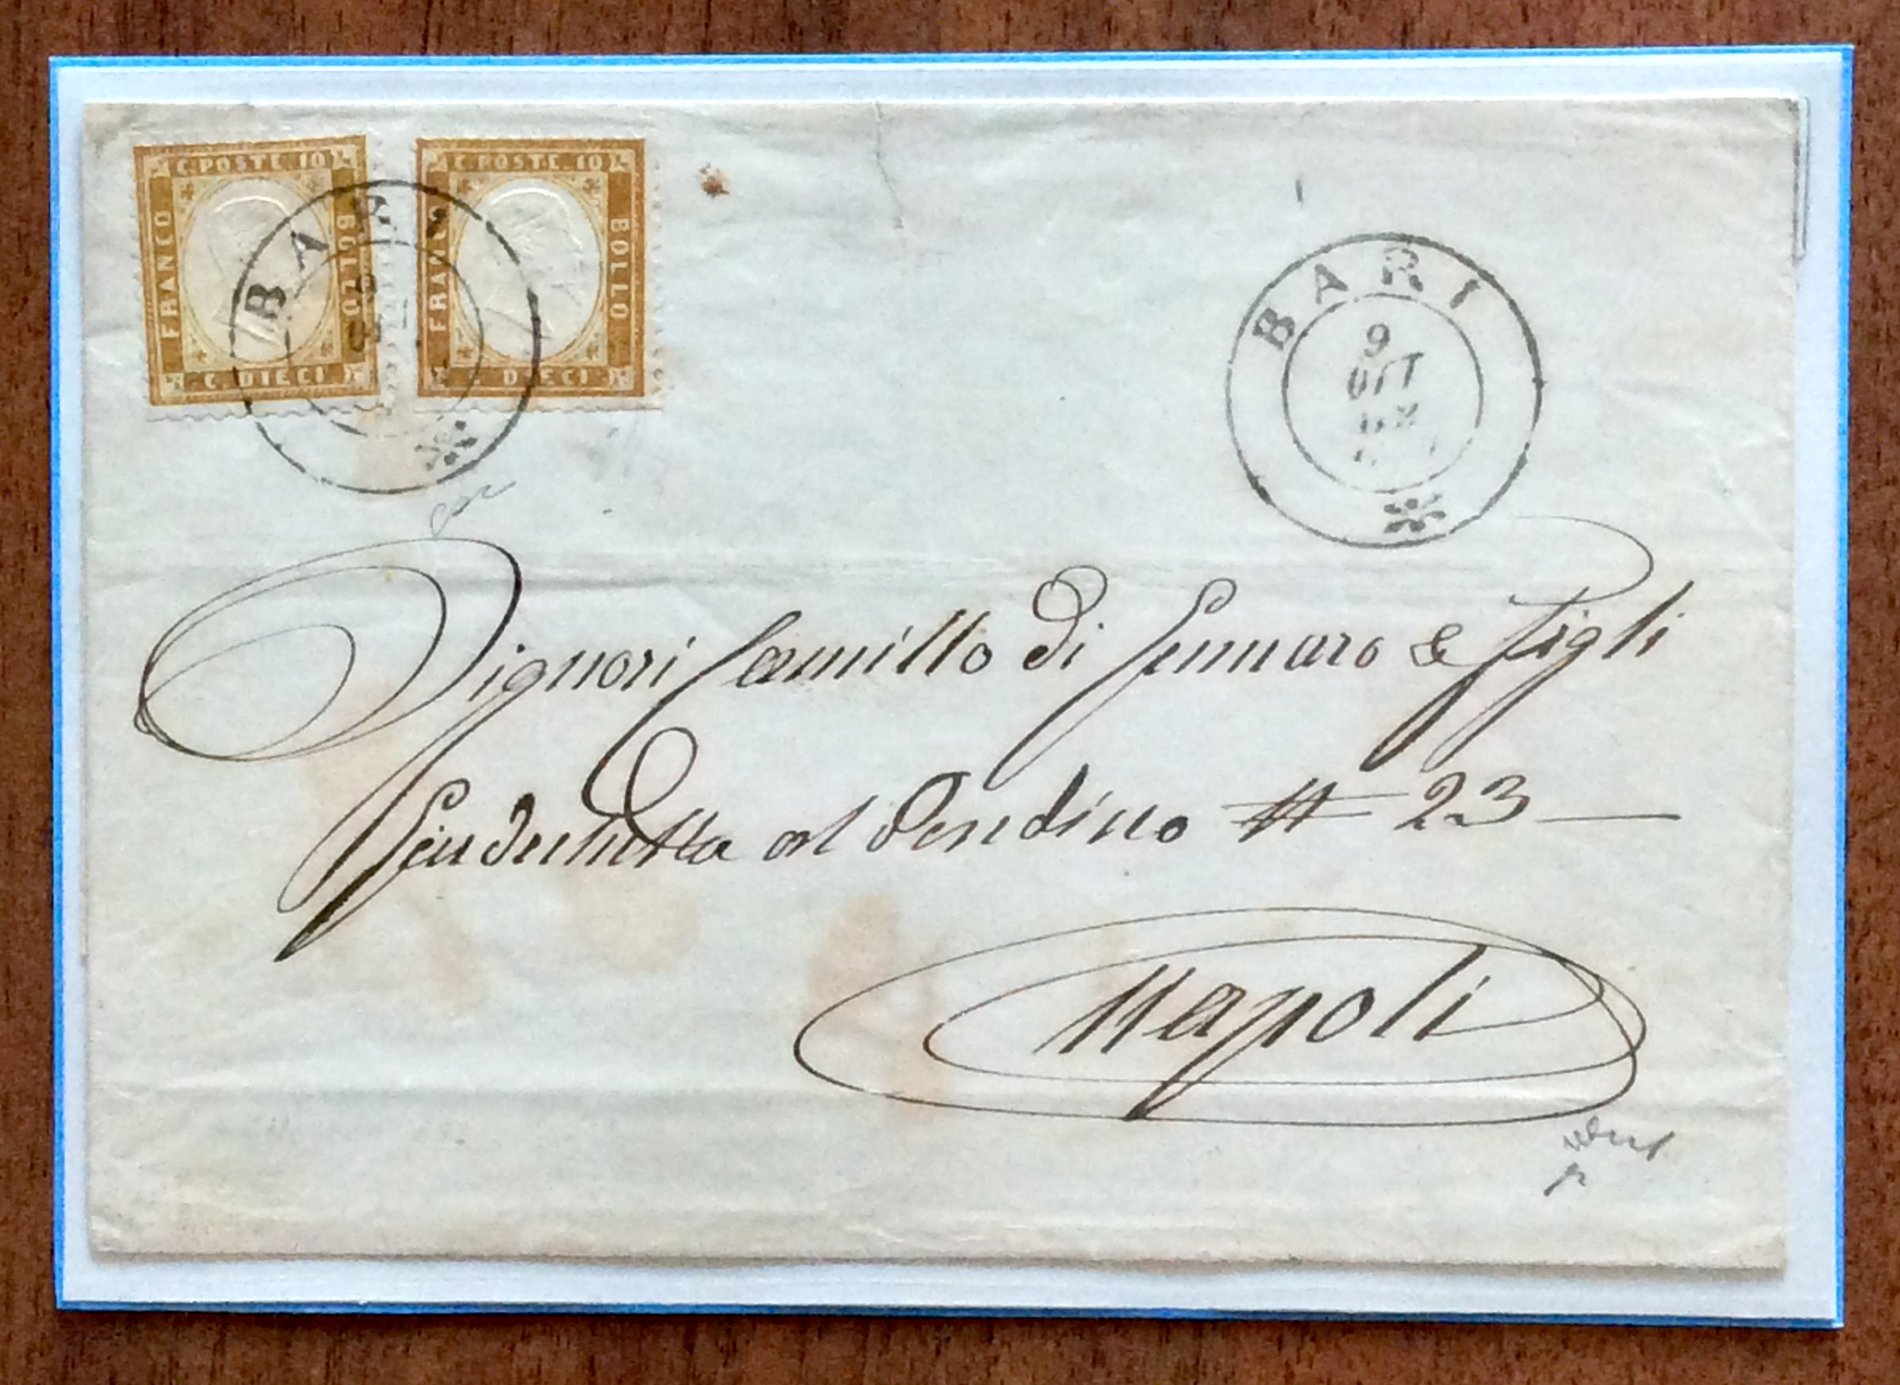 C. POSTE 10
FRANCO
BOLLO
C. DIECI
C. POSTE 10
FRANCO
BOLLO
C. DIECI
BARI
BARI
9
OTT
Signori Camillo di Gennaro & Figli
al Pendino # 23
Napoli